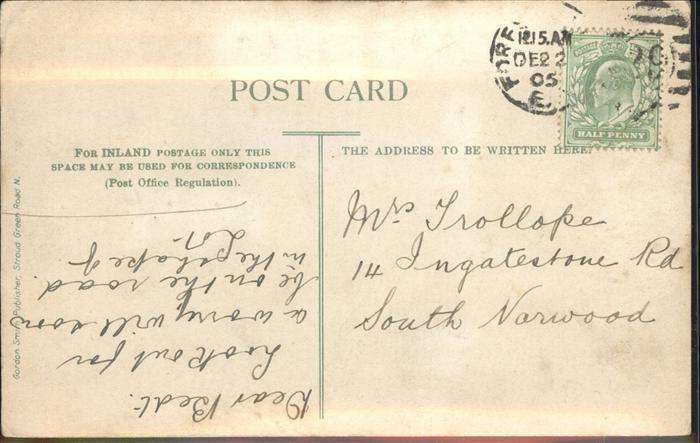 POST CARD
12.15.AM
DE 22
05
HALF PENNY
FOR INLAND POSTAGE ONLY THIS
SPACE MAY BE USED FOR CORRESPONDENCE
(Post Office Regulation).
THE ADDRESS TO BE WRITTEN HERE.
Mrs Trollope
14 Ingatestone Rd
South Norwood
Dear
Look out for
a worry will soon
be on the road
in the shape of
Gordon Smith, Publisher, Stroud Green Road N.